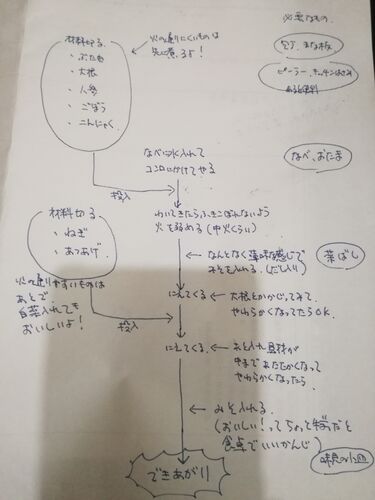 必要なもの。
材料切る
・ぶたにく
・大根
・人参
・ごぼう
・こんにゃく
火の通りにくいものは
先に煮るよ!
包丁、まな板
ピーラー、キッチンばさみ
あると便利
なべに水入れて
コンロにかけてやる
なべ、おたま
投入
材料切る
・ねぎ
・あつあげ
わいてきたらふきこぼれないよう
火を弱める(中火くらい)
なんとなく薄味な感じで
みそを入れる。(だし入り)
菜ばし
火の通りやすいものは
あとで。
白菜入れても
おいしいよ!
にえてくる
大根とかかじってみて
やわらかくなってたらOK.
投入
にえてくる
あと入れ具材が
中まであたたかくなって
やわらかくなったら
みそ入れる。
(おいしい!ってちょっと
食卓でいいかんじ)
味見の小皿
できあがり